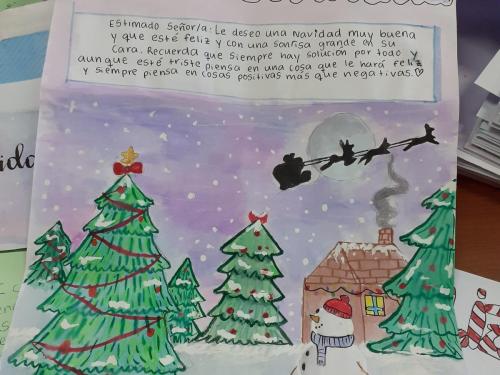 Estimado Señor/a: Le deseo una Navidad muy buena
y que esté feliz y con una sonrisa grande en su
cara. Recuerda que siempre hay solución por todo y
aunque esté triste piensa en una cosa que le hará feliz
y siempre piensa en cosas positivas más que negativas.♡